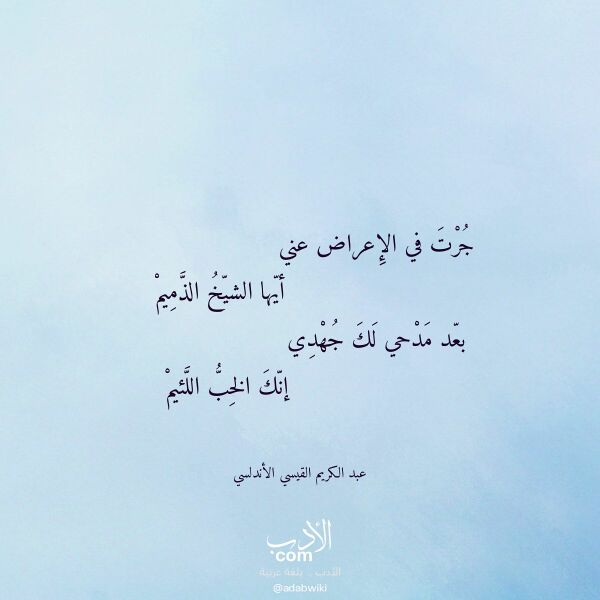 جُرْتَ في الإِعراض عني
أيّها الشيّخُ الذَّمِيمْ
بعّد مَدْحي لَكَ جُهْدِي
إنّكَ الخِبُّ اللَّئيمْ
عبد الكريم القيسي الأندلسي
الأدب
com
الأدب .. بلغة عربية
@adabwiki